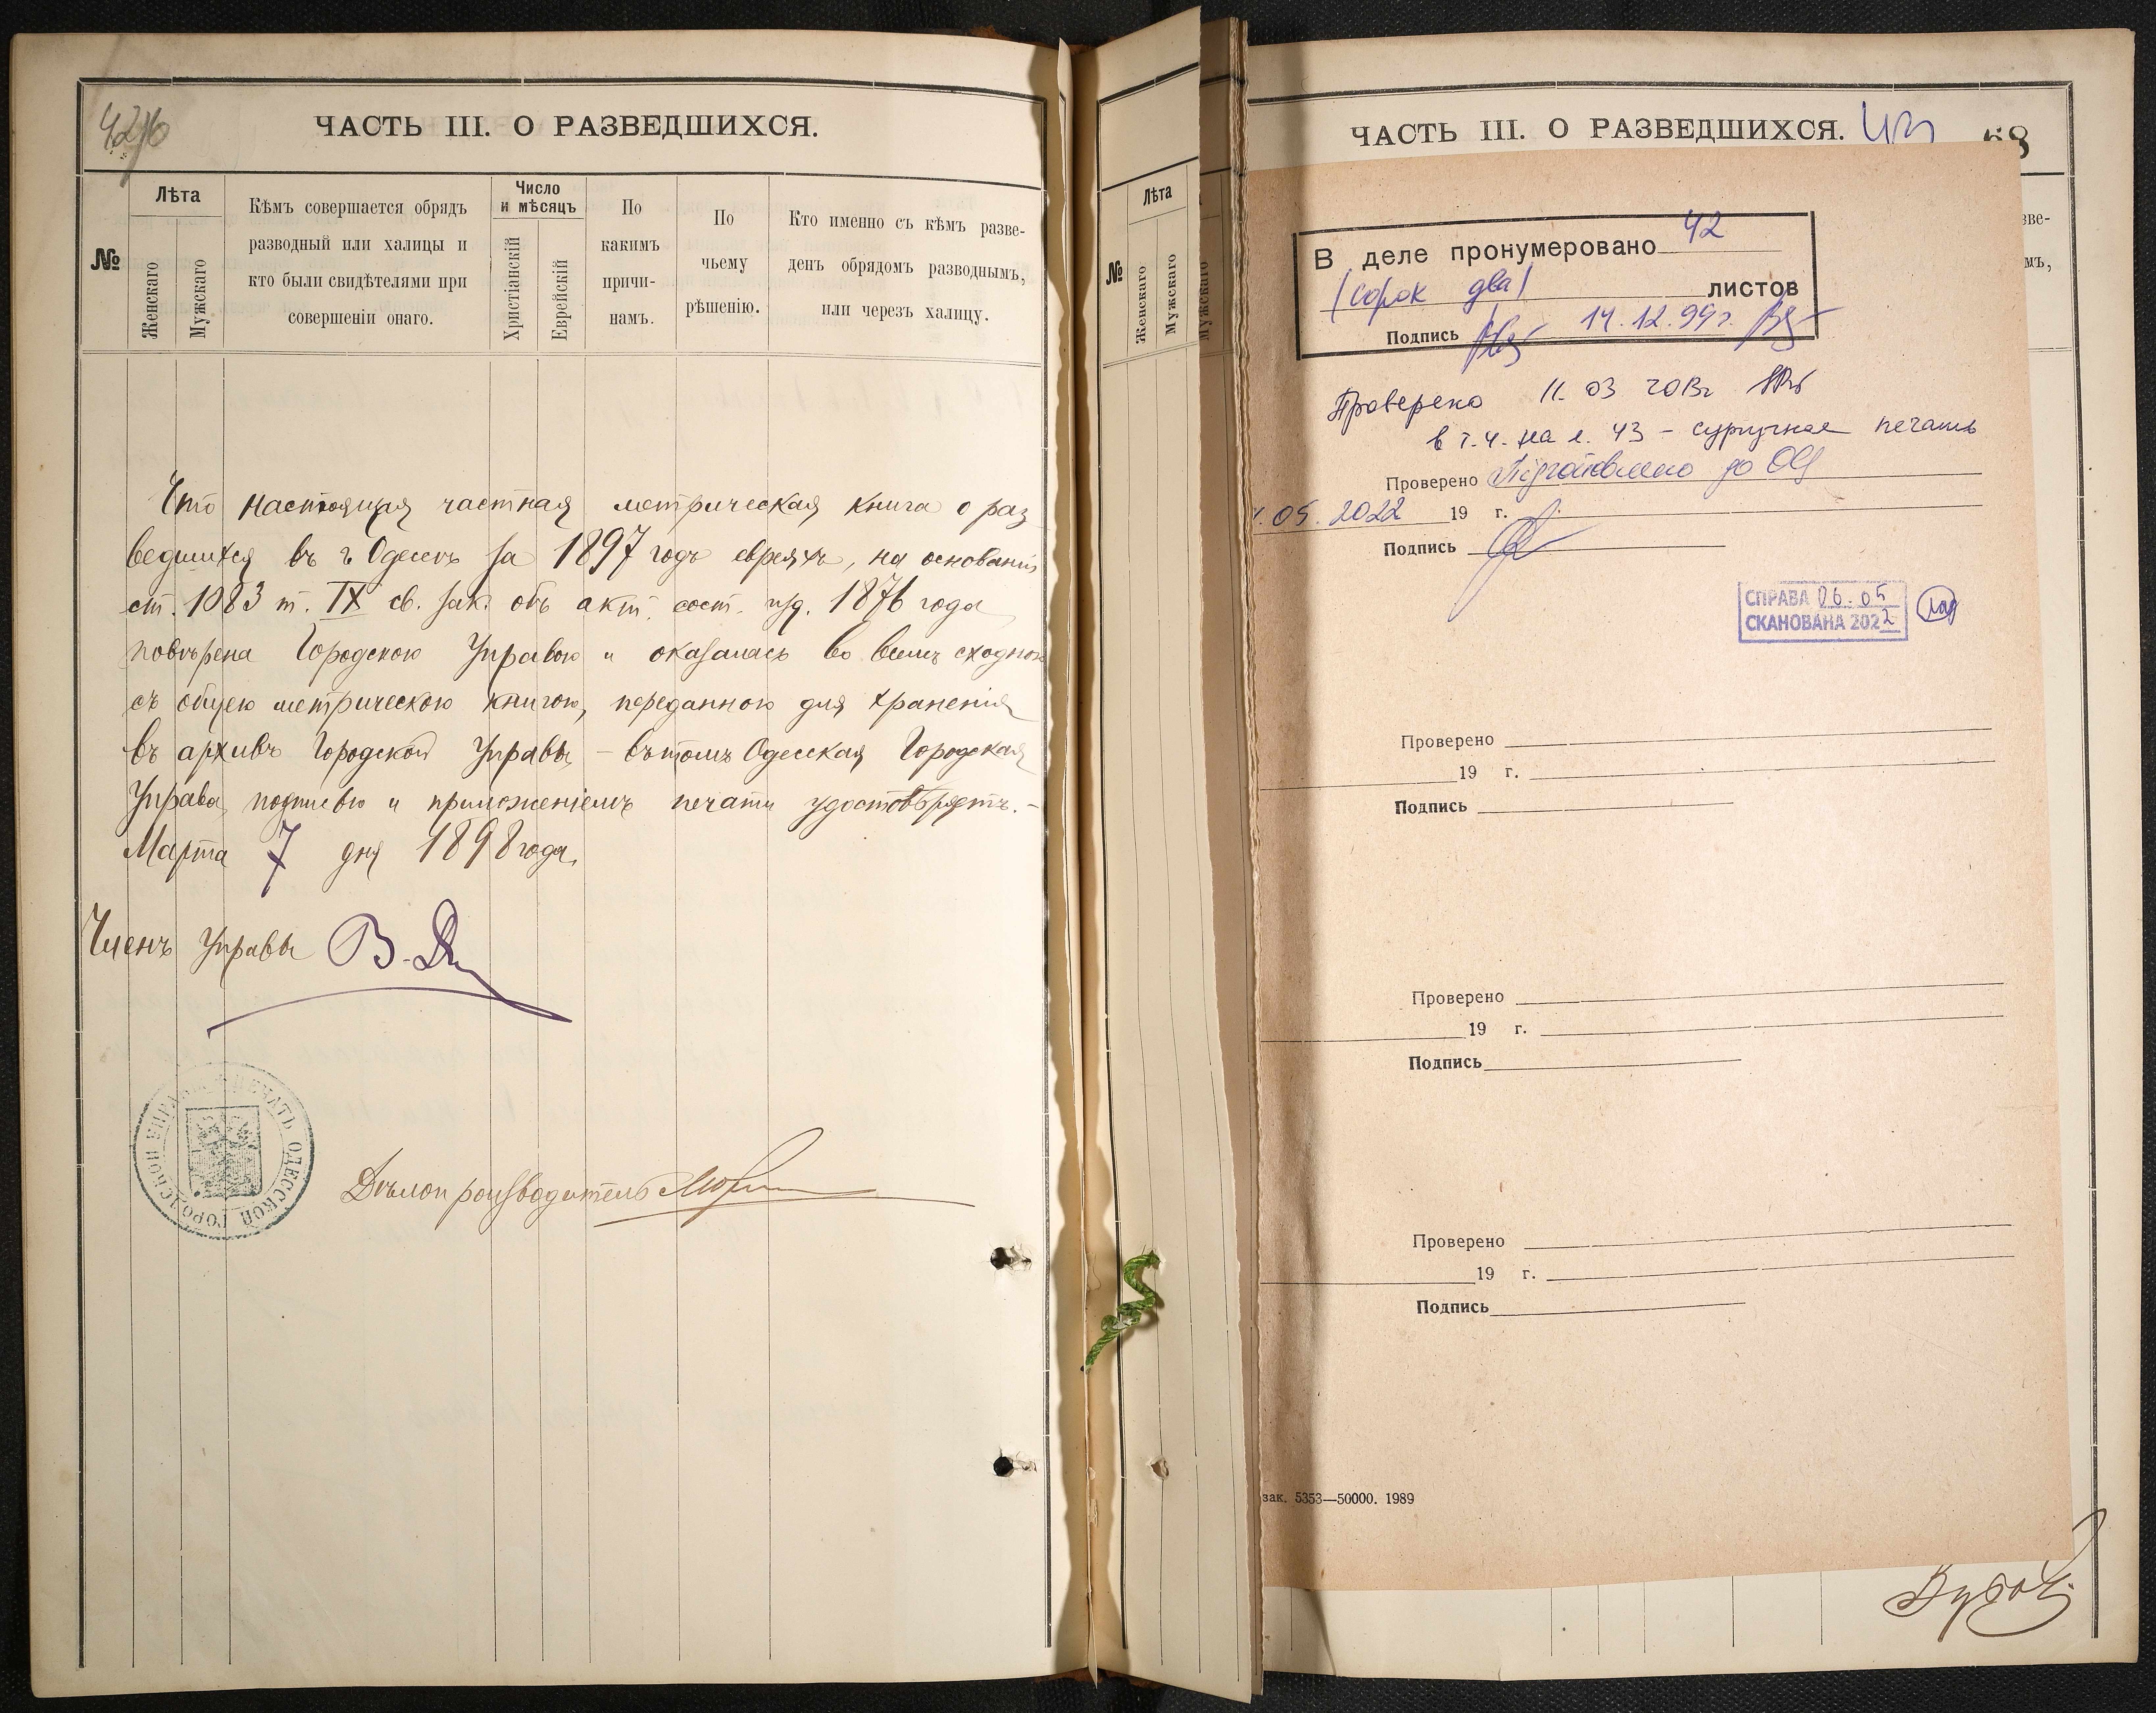 42 об
ЧАСТЬ III. О РАЗВЕДШИХСЯ.
№
Лѣта
Женскаго
Мужскаго
Кѣмъ совершается обрядъ
разводный или халицы и
кто были свидѣтелями при
совершеніи онаго.
Число
и мѣсяцъ
Христіанскій
Еврейскій
По
какимъ
причи-
намъ.
По
чьему
рѣшенію.
Кто именно съ кѣмъ разве-
денъ обрядомъ разводнымъ,
или черезъ халицу.
Что настоящая частная метрическая книга о раз
ведшихся въ г. Одессѣ за 1897 годъ евреяхъ, на основаніи
ст. 1083 т. IX св. зак. объ акт. сост. изд. 1876 года
повѣрена Городскою Управою и оказалась во всемъ сходною
съ общею метрическою книгою, переданною для храненія
въ архивъ Городской Управы, – въ томъ Одесская Городская
Управа, подписью и приложеніемъ печати удостовѣряетъ. –
Марта 7 дня 1898 года.
Членъ Управы
ПЕЧАТЬ ОДЕССКОЙ ГОРОДСКОЙ УПРАВЫ
Дѣлопроизводитель
№
Лѣта
Женскаго
Мужскаго
Мужскаго
ЧАСТЬ III. О РАЗВЕДШИХСЯ.
43
68
зве-
мъ,
В деле пронумеровано 42
(сорок два) листов
Подпись 14.12.99 г.
Проверено 11.03 2013г
в т.ч. на л. 43 – сургучная печать
Проверено Підготовлено до ОЦ
.05.2022 19 г.
Подпись
СПРАВА 06.05
СКАНОВАНА 2022
Проверено
19 г.
Подпись
Проверено
19 г.
Подпись
Проверено
19 г.
Подпись
зак. 5353—50000. 1989